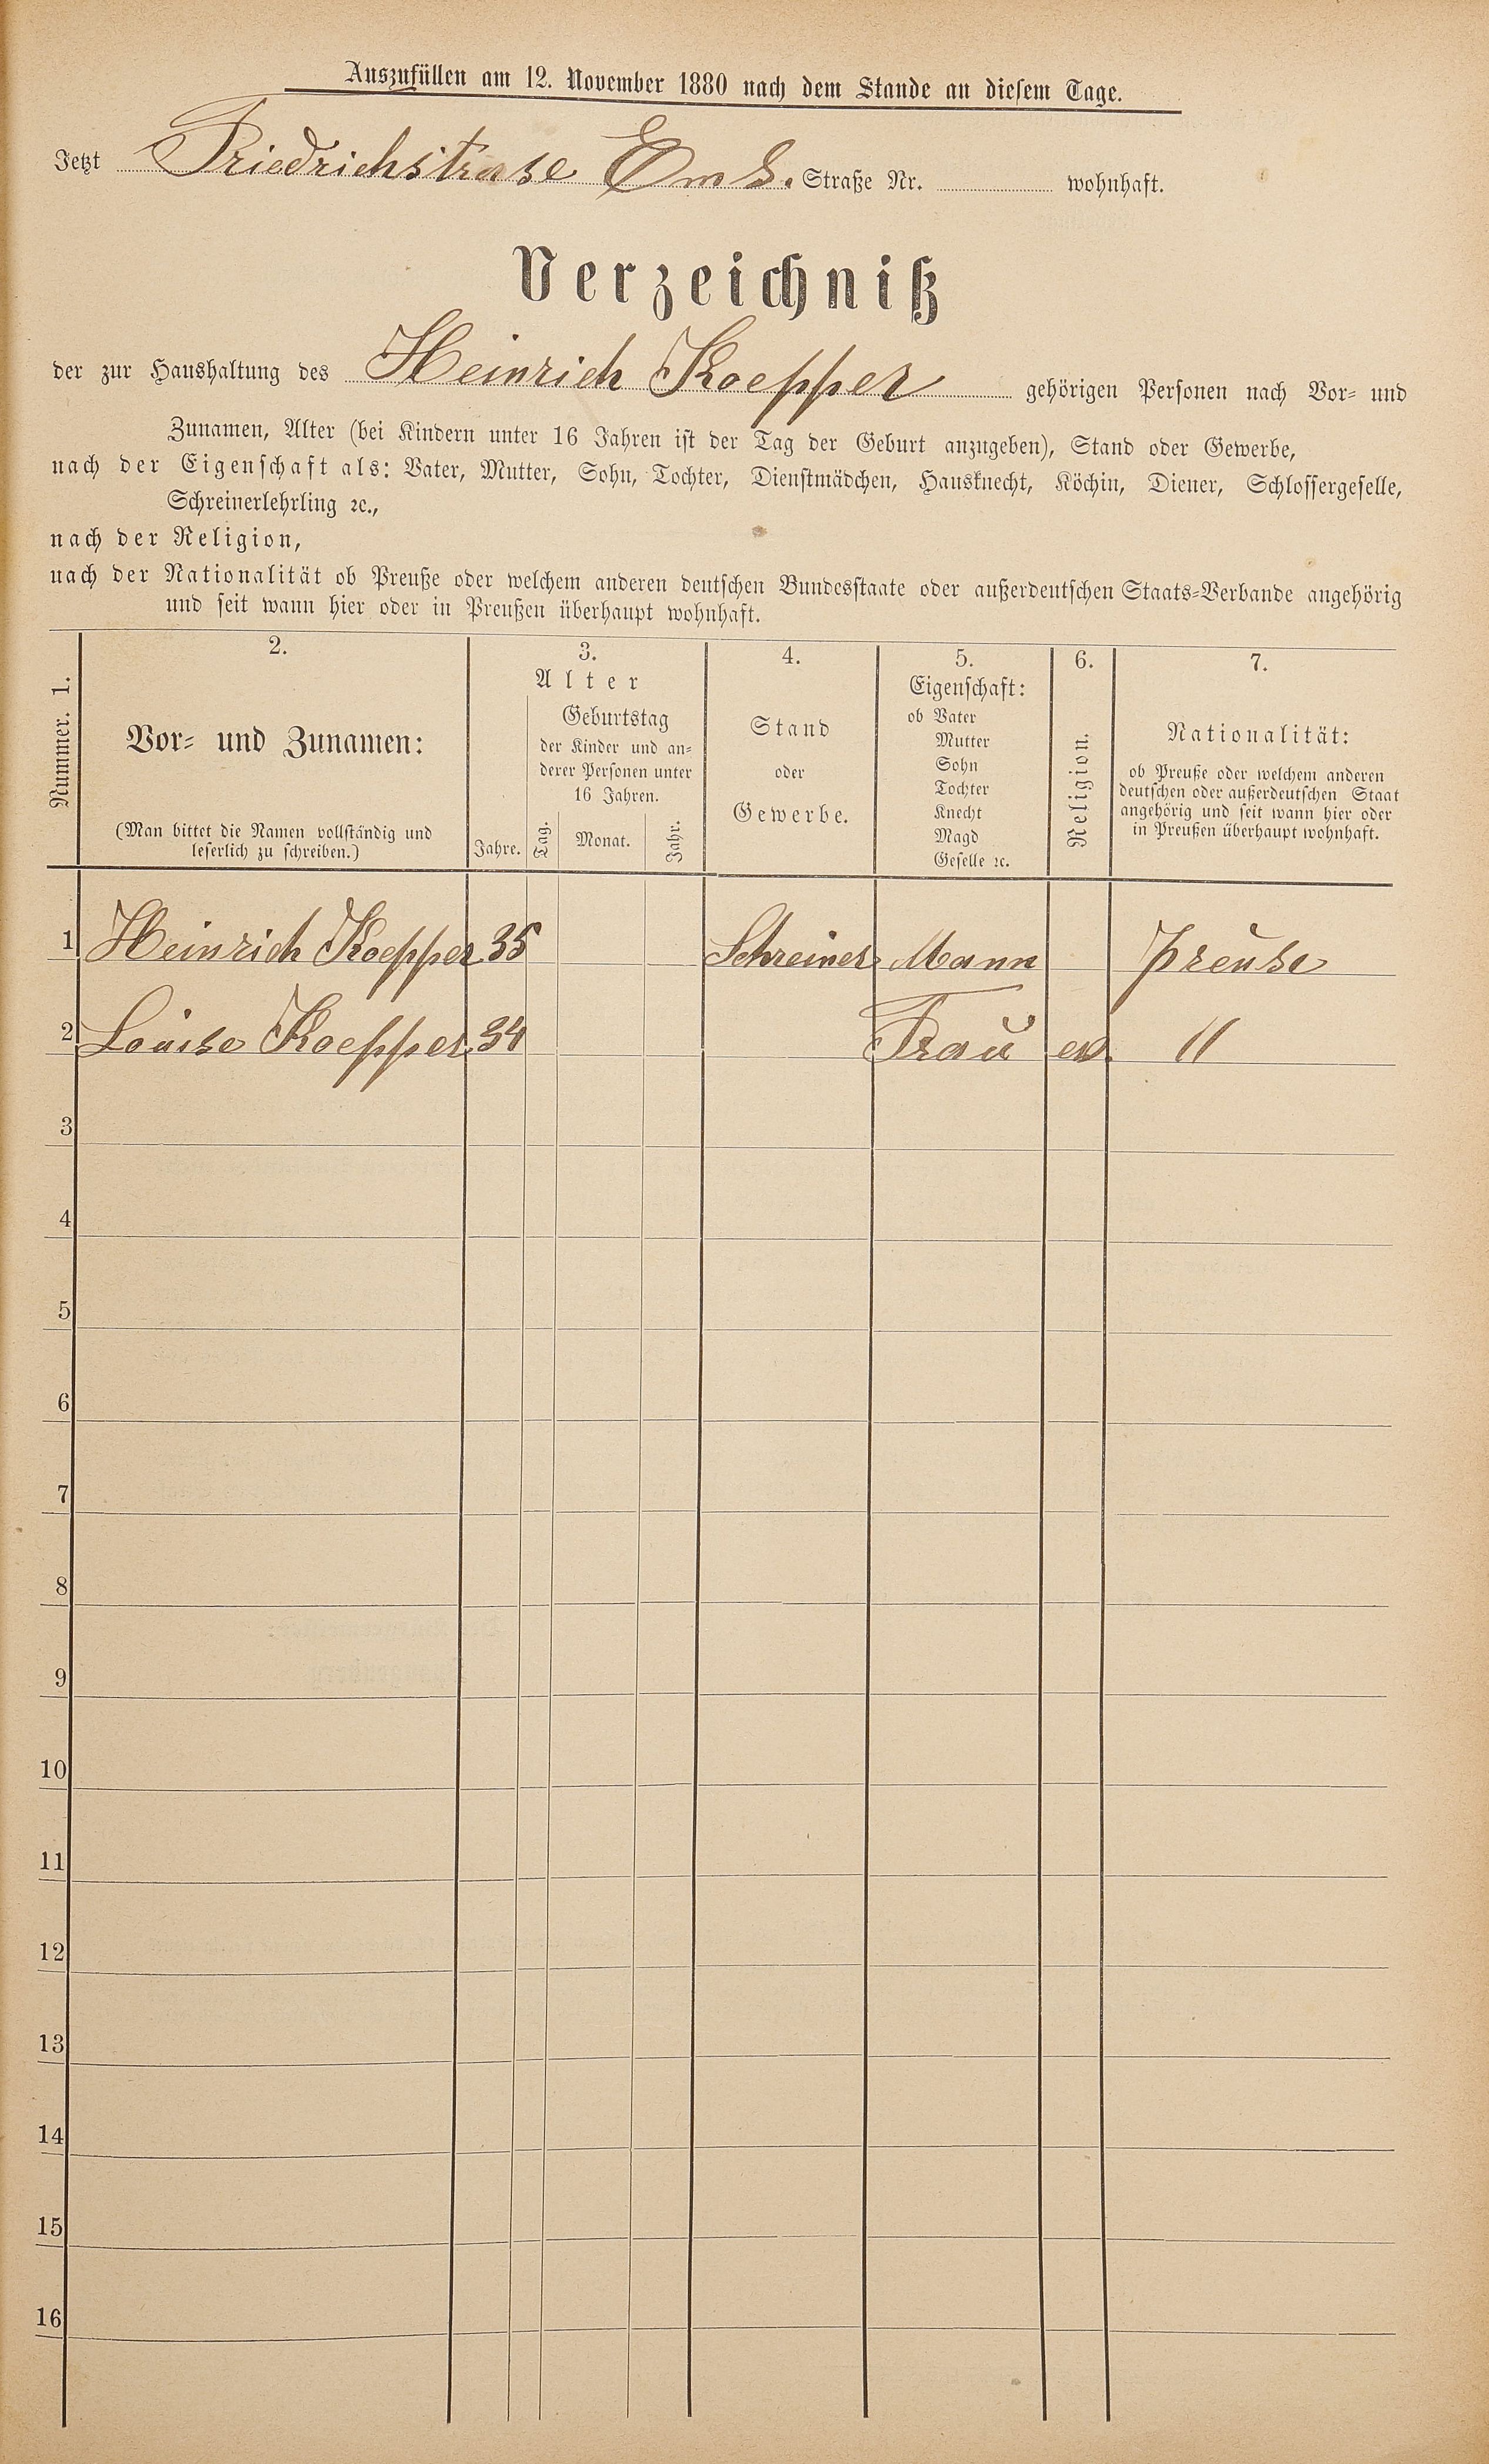 Auszufüllen am 12. November 1880 nach dem Stande an diesem Tage.
Jetzt Friedrichstrase Ems. Straße Nr. wohnhaft.
Verzeichniß
der zur Haushaltung des Heinrich Koepper gehörigen Personen nach Vor- und
Zunamen, Alter (bei Kindern unter 16 Jahren ist der Tag der Geburt anzugeben), Stand oder Gewerbe,
nach der Eigenschaft als: Vater, Mutter, Sohn, Tochter, Dienstmädchen, Hausknecht, Köchin, Diener, Schlossergeselle,
Schreinerlehrling ꝛc.,
nach der Religion,
nach der Nationalität ob Preuße oder welchem anderen deutschen Bundesstaate oder außerdeutschen Staats-Verbande angehörig
und seit wann hier oder in Preußen überhaupt wohnhaft.
Nummer. 1.
2.
Vor- und Zunamen:
(Man bittet die Namen vollständig und
leserlich zu schreiben.)
3.
Alter
Jahre.
Geburtstag
der Kinder und an-
derer Personen unter
16 Jahren.
Tag. Monat. Jahr.
4.
Stand
oder
Gewerbe.
5.
Eigenschaft:
ob Vater
Mutter
Sohn
Tochter
Knecht
Magd
Geselle ꝛc.
6.
Religion.
7.
Nationalität:
ob Preuße oder welchem anderen
deutschen oder außerdeutschen Staat
angehörig und seit wann hier oder
in Preußen überhaupt wohnhaft.
1 Heinrich Koepper 35 Schreiner Mann Preuse
2 Louise Koepper 34 Frau ev. "
3
4
5
6
7
8
9
10
11
12
13
14
15
16